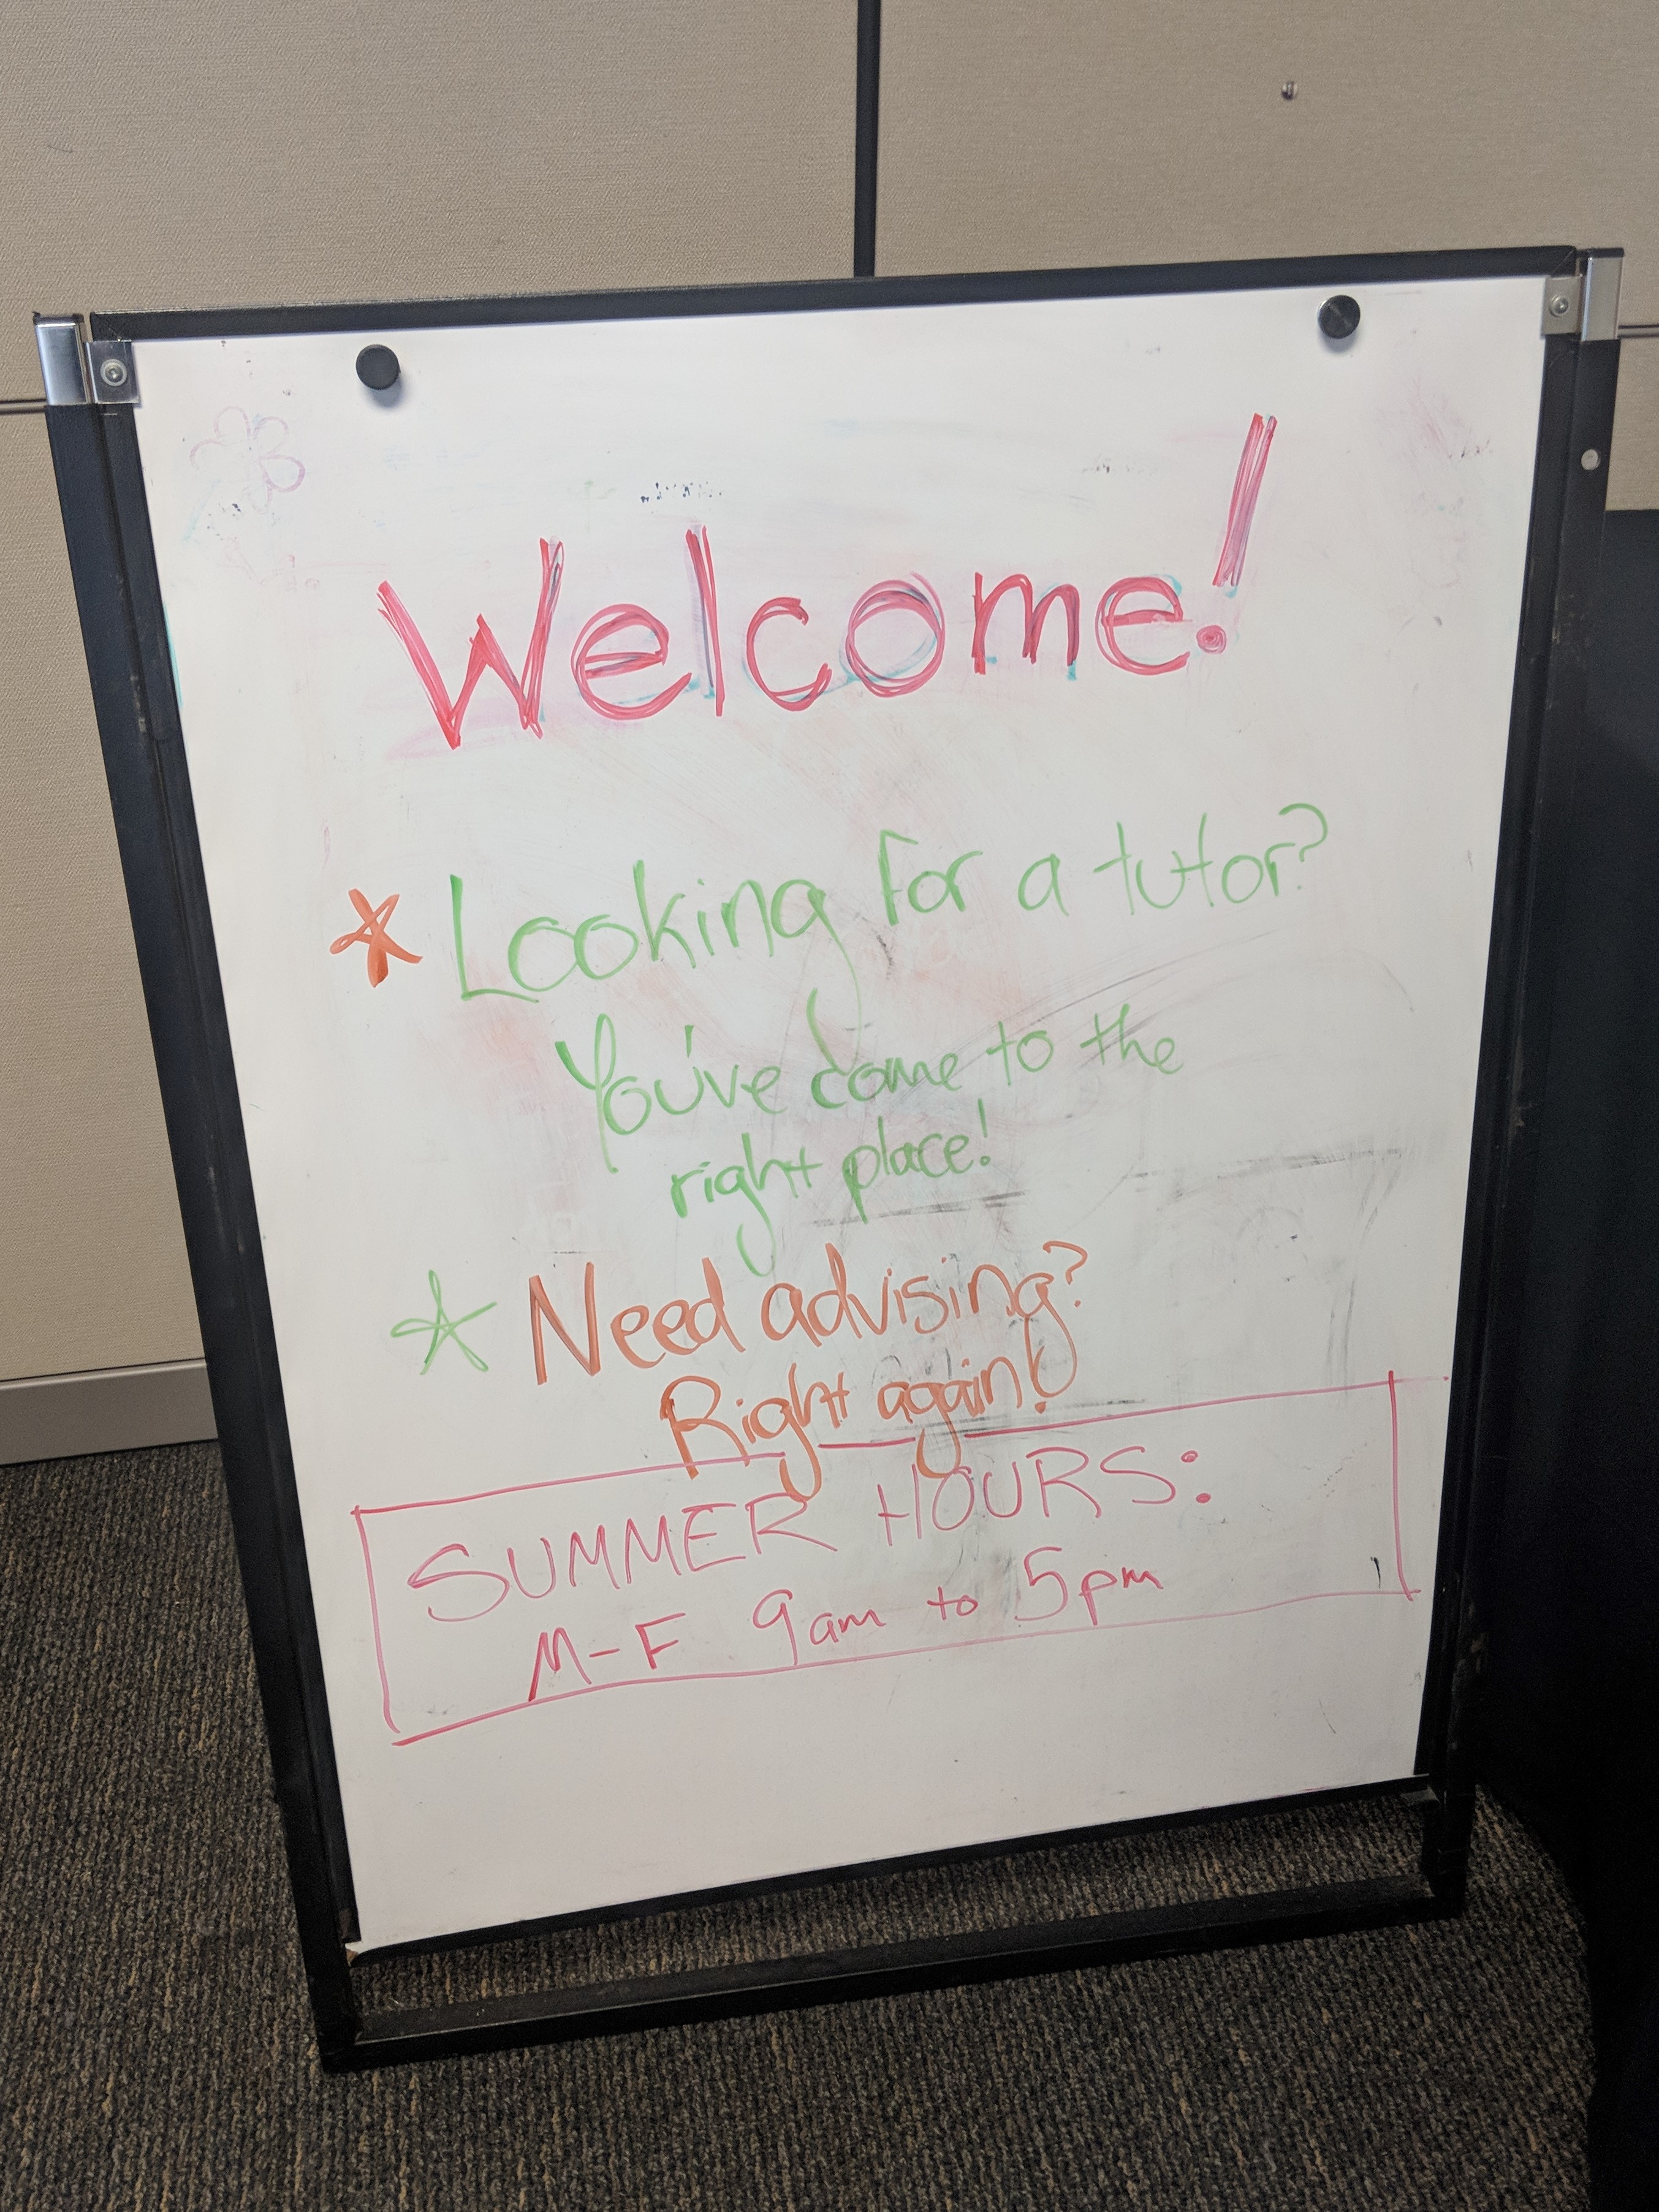 Welcome!
Looking for a tutor?
You've come to the
right place!
Need advising?
Right again!
SUMMER HOURS:
M-F 9am to 5pm